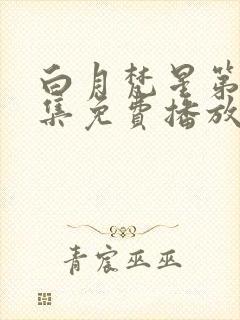 白月梵星第
集免费播放
青宸巫巫